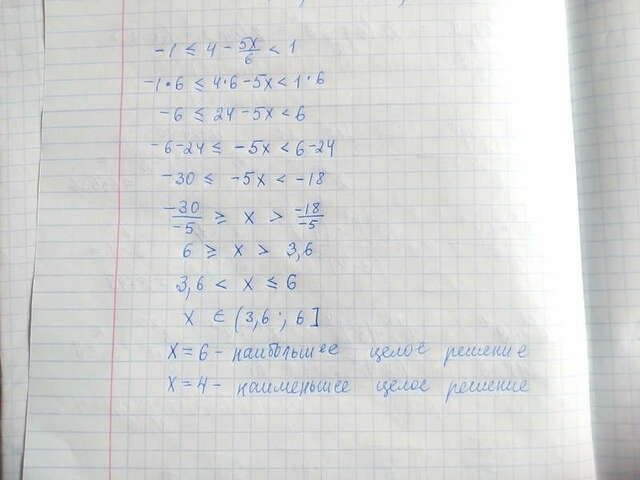 -1 ≤ 4 - 5x/6 < 1
-1·6 ≤ 4·6-5x < 1·6
-6 ≤ 24-5x < 6
-6-24 ≤ -5x < 6-24
-30 ≤ -5x < -18
-30/-5 ≥ x > -18/-5
6 ≥ x > 3,6
3,6 < x ≤ 6
x ∈ (3,6 ; 6]
x=6 - наибольшее целое решение
x=4 - наименьшее целое решение